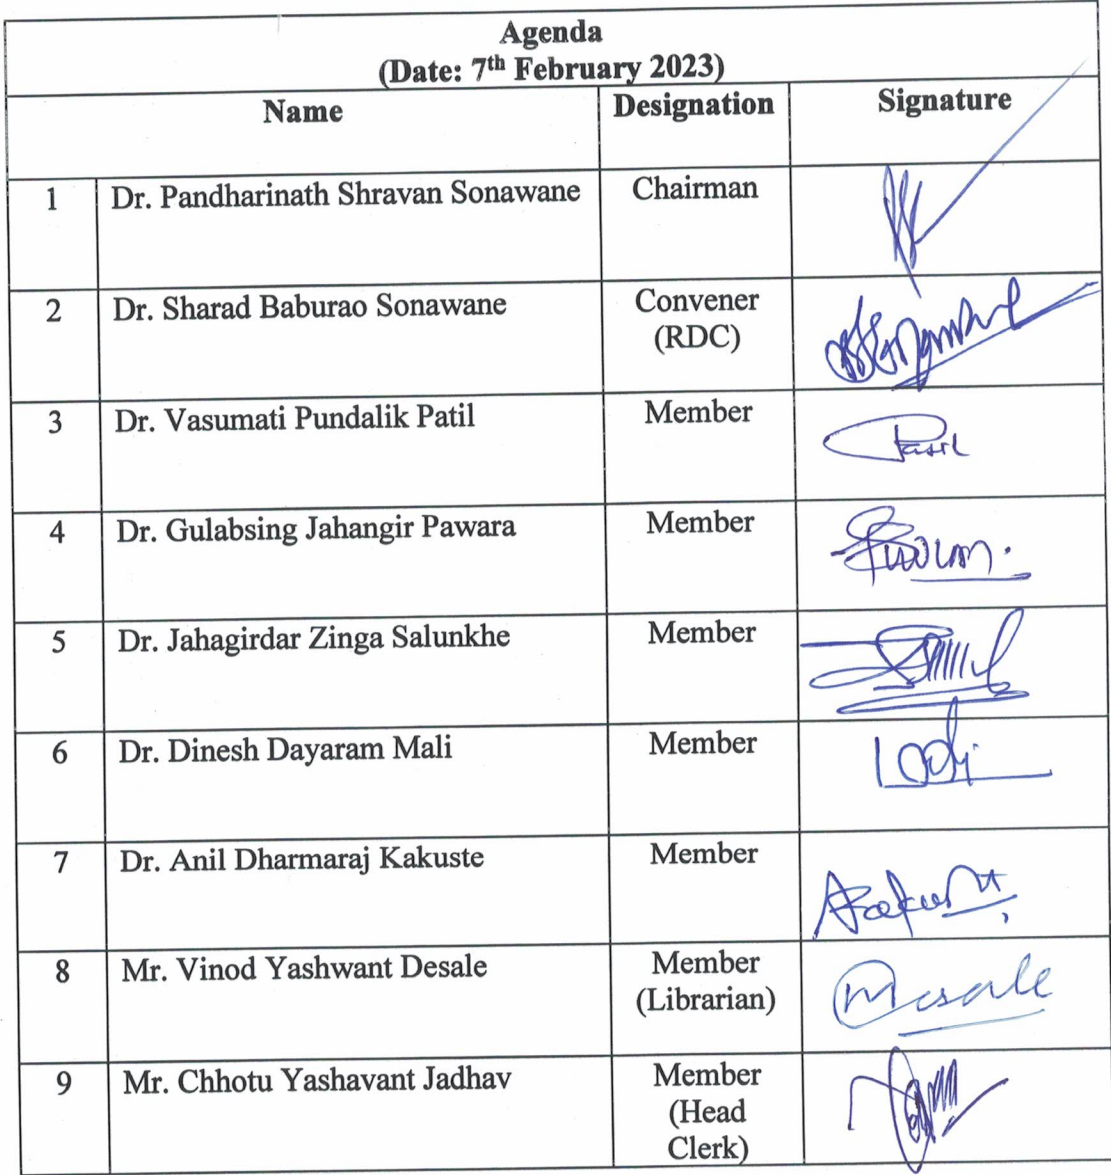 Agenda
(Date: 7th February 2023)
Name Designation Signature
1 Dr. Pandharinath Shravan Sonawane Chairman
2 Dr. Sharad Baburao Sonawane Convener
(RDC)
3 Dr. Vasumati Pundalik Patil Member
4 Dr. Gulabsing Jahangir Pawara Member
5 Dr. Jahagirdar Zinga Salunkhe Member
6 Dr. Dinesh Dayaram Mali Member
7 Dr. Anil Dharmaraj Kakuste Member
8 Mr. Vinod Yashwant Desale Member
(Librarian)
9 Mr. Chhotu Yashavant Jadhav Member
(Head
Clerk)